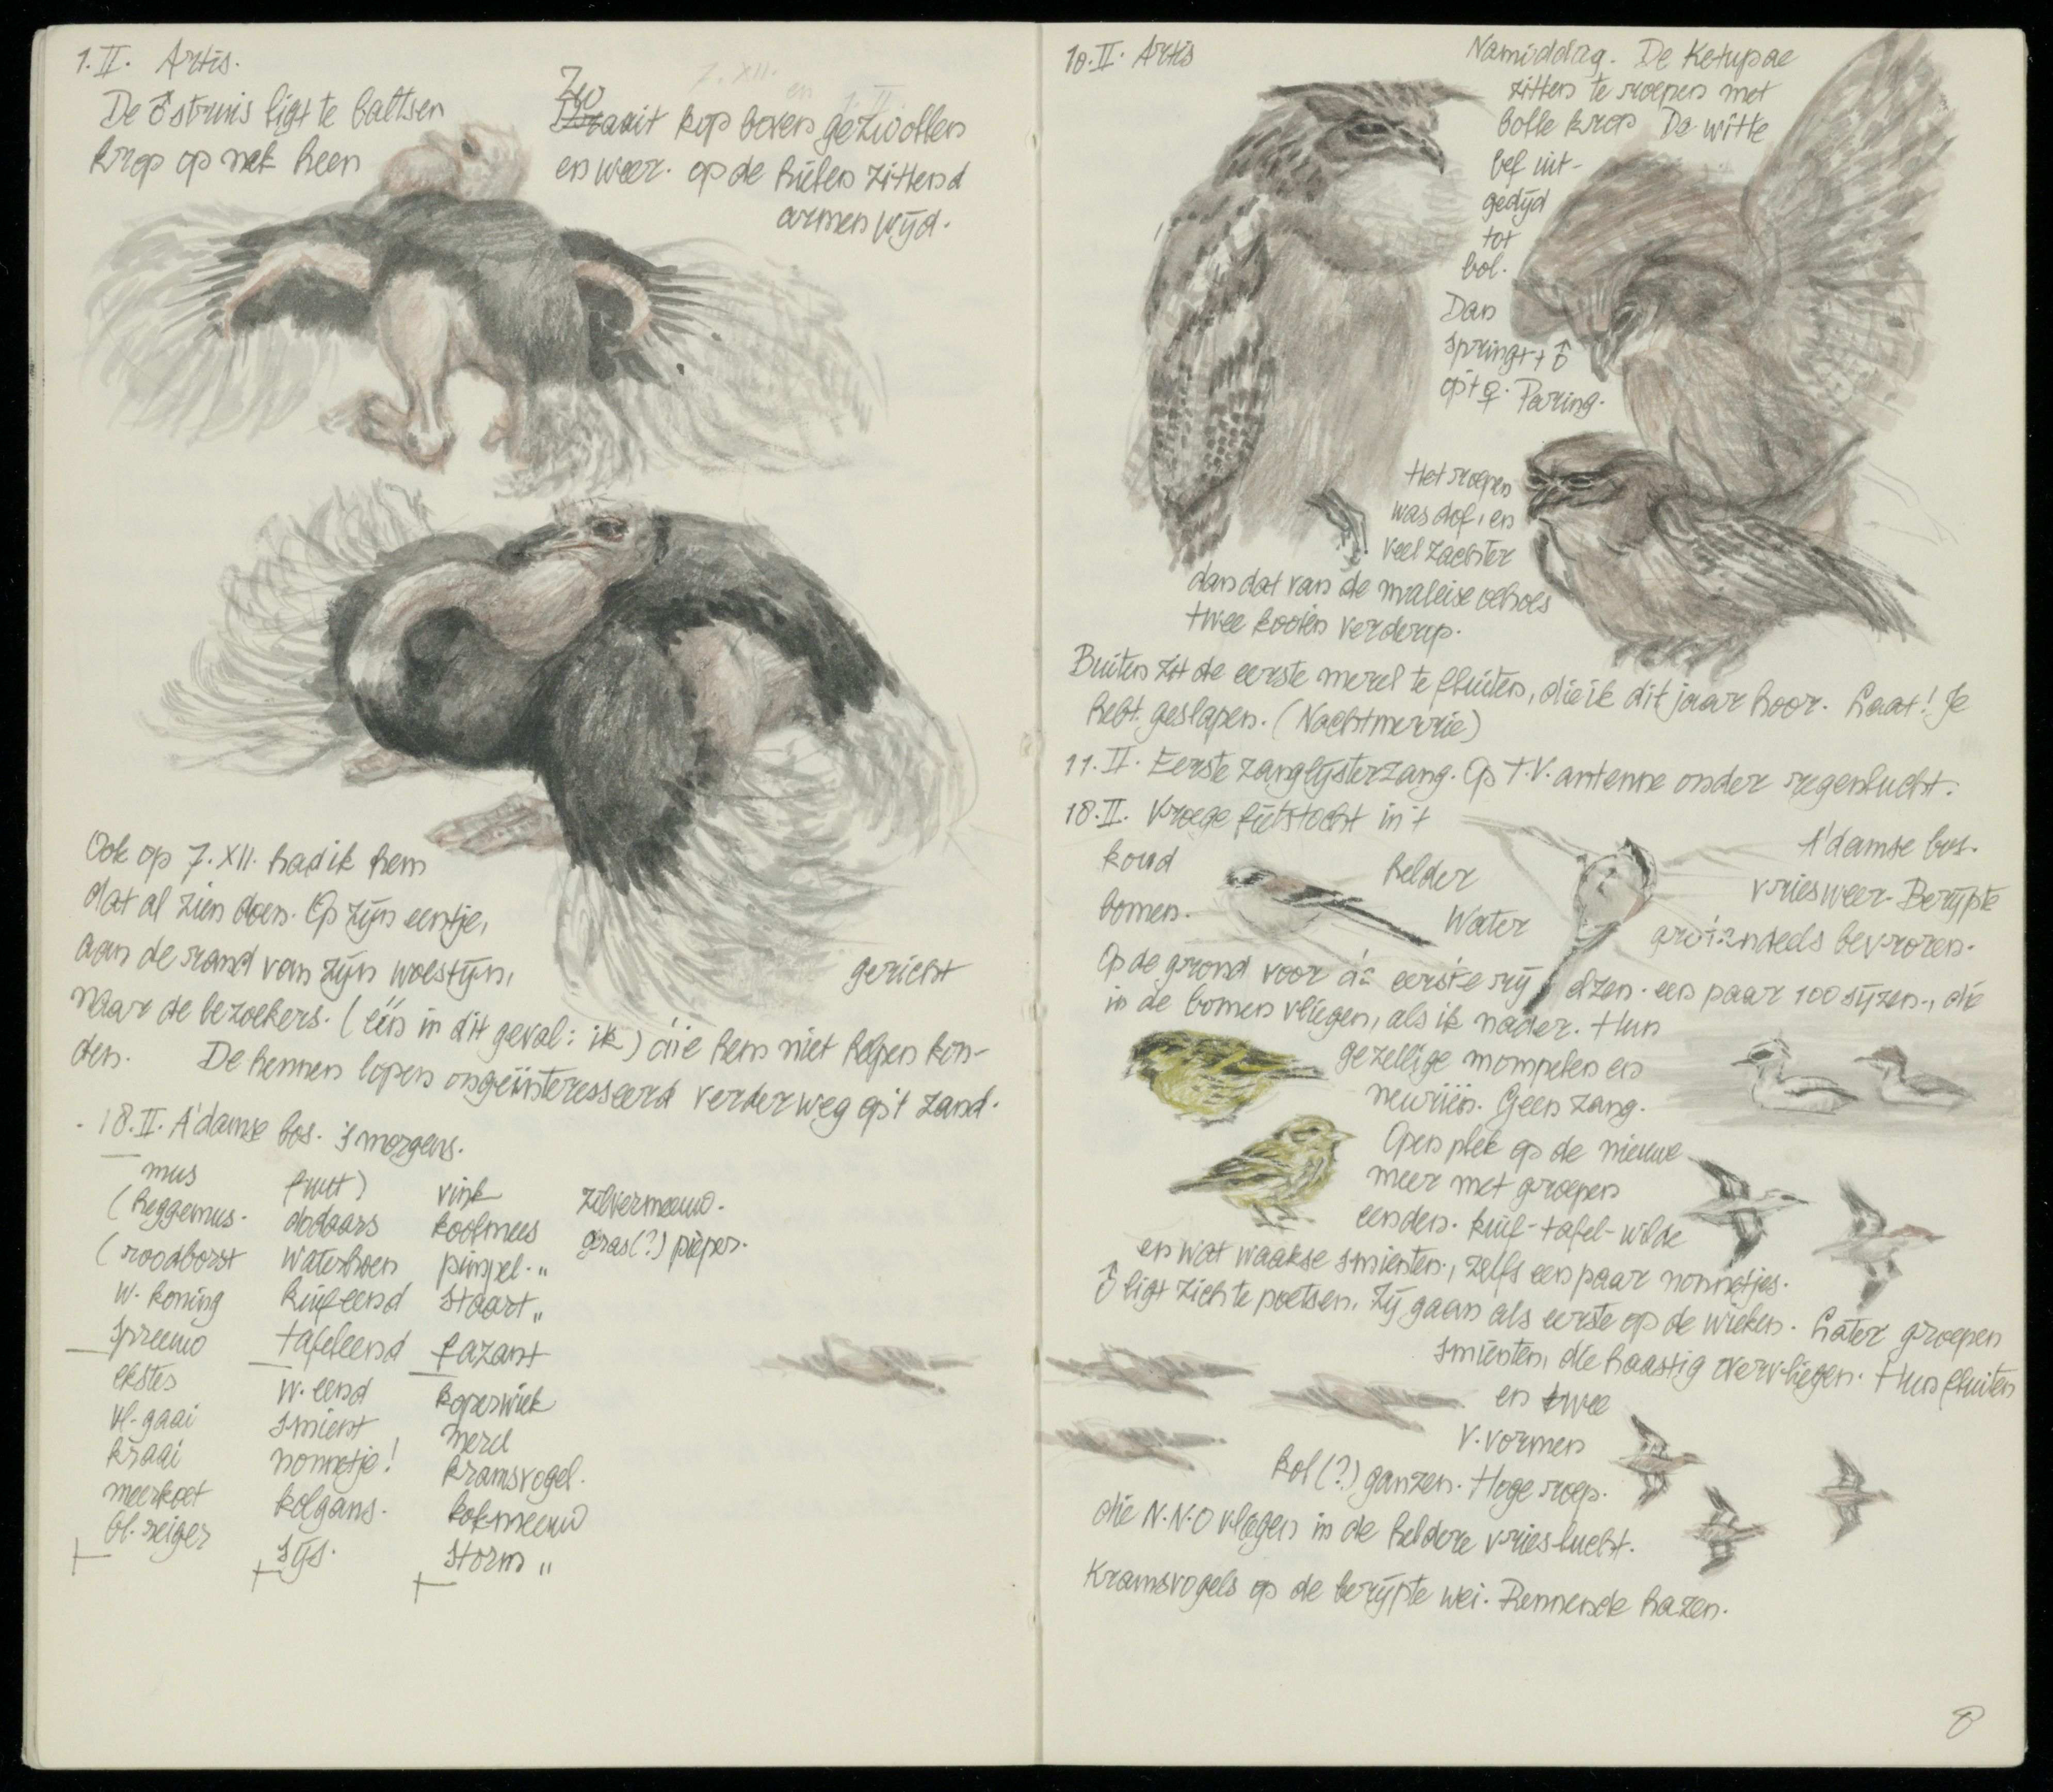 1.II. Artis.
7.XII.
en 1.II
De ♂ struis ligt te baltsen
Zwaait kop boven gezwollen
krop op nek heen
en weer. op de hielen zittend
armen wijd.
Ook op 7.XII. had ik hem
dat al zien doen. Op zijn eentje,
aan de rand van zijn woestijn,
gericht
naar de bezoekers. (één in dit geval: ik) die hem niet helpen kon-
den. De hennen lopen ongeïnteresseerd verder weg op 't zand.
18.II. A'damse bos. 's morgens.
mus
(heggemus.
(roodborst
w. koning
spreeuw
ekster
vl. gaai
kraai
meerkoet
bl. reiger
fuut)
dodaars
waterhoen
kuifeend
tafeleend
w. eend
smient
nonnetje!
kolgans.
sijs.
vink
koolmees
pimpel. "
staart "
fazant
koperwiek
merel
kramsvogel.
kokmeeuw
storm "
zilvermeeuw.
gras(?) pieper.
10.II. Artis
Namiddag. De Ketupae
zitten te roepen met
bolle krop De witte
bef uit-
gedijd
tot
bol.
Dan
springt 't ♂
op 't ♀. Paring.
Het roepen
was dof, en
veel zachter
dan dat van de maleise oehoes
twee kooien verderop.
Buiten zit de eerste merel te fluiten, die ik dit jaar hoor. Laat! Je
hebt geslapen. (Nachtmerrie)
11.II. Eerste zanglijsterzang. Op T.V. antenne onder regenlucht.
18.II. Vroege fietstocht in 't A'damse bos.
koud helder vriesweer. Berijpte
bomen. Water grotendeels bevroren.
Op de grond voor de eerste rij elzen. een paar 100 sijzen, die
in de bomen vliegen, als ik nader. Hun
gezellige mompelen en
neuriën. Geen zang.
Open plek op de nieuwe
meer met groepen
eenden. kuif-tafel-wilde
en wat waakse smienten, zelfs een paar nonnetjes.
♂ ligt zich te poetsen. Zij gaan als eerste op de wieken. Later groepen
smienten, die haastig overvliegen. Hun fluiten
en twee
V.vormen
kol(?) ganzen. Hoge roep.
die N.N.O vlogen in de heldere vrieslucht.
Kramsvogels op de berijpte wei. Rennende hazen.
8